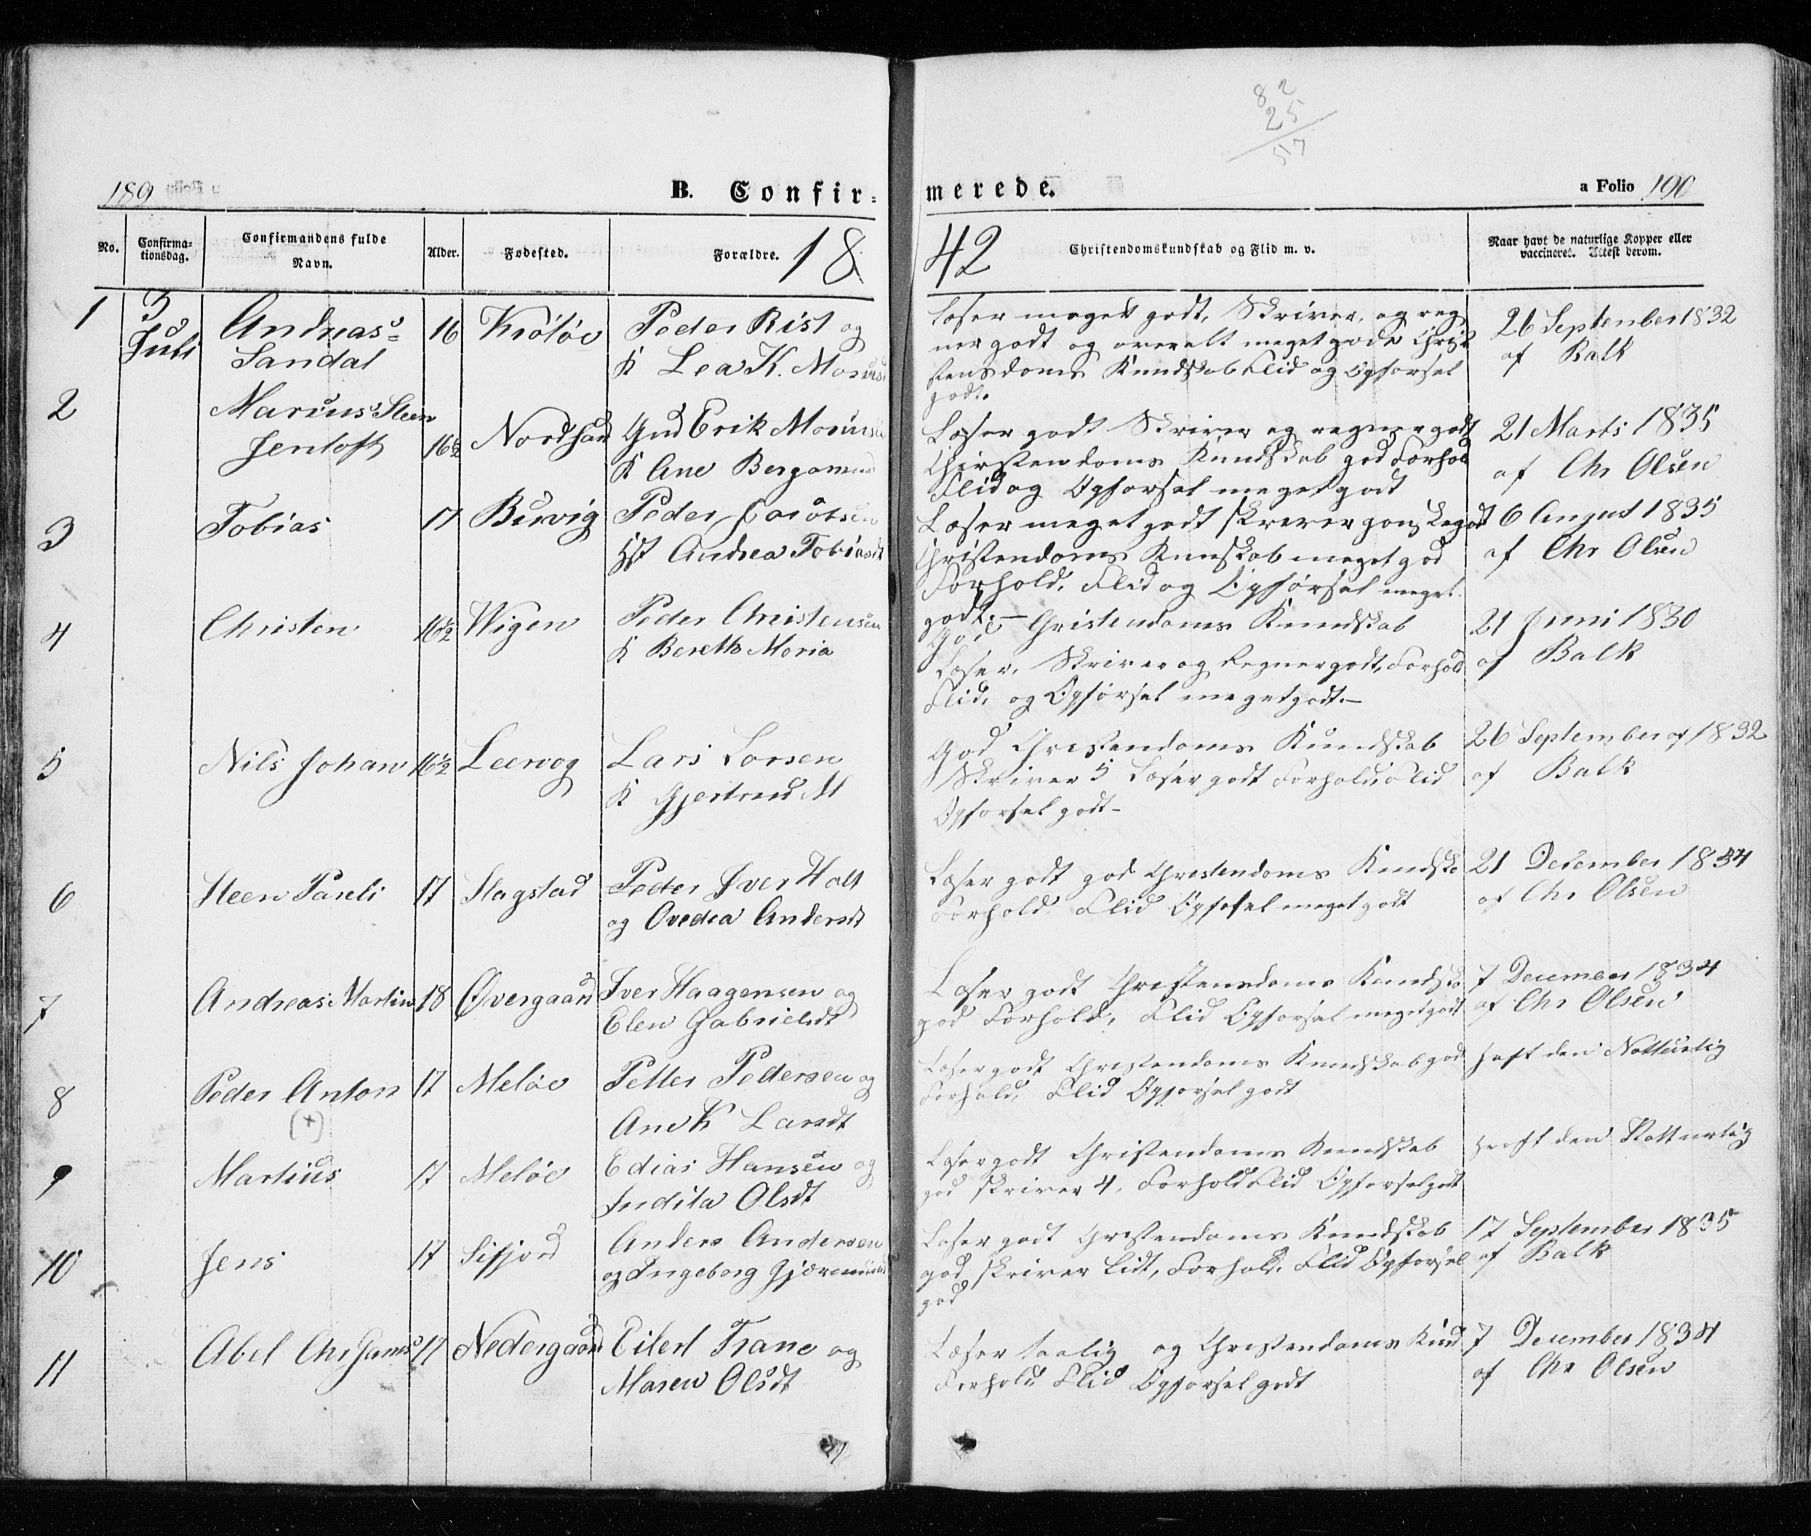 82
25
517
189
B. Confir-
merede.
a Folio 190
No.
Confirma-
tionsdag.
Confirmandens fulde
Navn.
Alder.
Fødested.
Forældre.
18
42
Christendomskundskab og Flid m. v.
Naar havt de naturlige Kopper eller
vaccineret. Attest derom.
1 3 Juli Andreas Sandal 16 Krøtøe Peder Rist og
K Lea K.
Læser meget godt, Skriver, og reg
ner godt og overalt meget gode Chris
tensdoms Kundskab Flid og Opførsel
godt.
26 September 1832
af Balk
2 Marius Steen
Jentoft 16½ Nordsan Gud Erik
K Ane
Læser godt Skriver og regner godt
Christendoms Kundskab god Forhold
Flid og Opførsel meget godt
21 Marts 1835
af Chr Olsen
3 Tobias 17 Burvig Peder Jacobsen
Andrea Tobiasdt
Læser meget godt skrever ganske godt
Christendoms Kunskab meget god
Forhold, Flid og Opførsel meget
godt.-
6 August 1835
af Chr Olsen
4 Christen 16½ Wigen Peder Christensen
K Bereth Maria
God Christendoms Kundskab
Læser, Skriver og Regner godt, Forhold
Flid, og Opførsel meget godt.-
21 Juni 1830
af Balk
5 Nils Johan 16½ Leervog Lars Larsen
K Gjertrud M
God Christendoms Kundskab
Skriver 5 Læser godt Forhold Flid
Opførsel godt-
26 September af 1832
af Balk
6 Steen Pareli 17 Slagstad Peder Iver Holt
og Ovedia Andersdt
Læser godt god Christendoms Kundska
Forhold Flid Opførsel meget godt
21 December 1834
af Chr Olsen
7 Andreas Martin 18 Øvergaard Iver Haagensen og
Elen Gabrielsdt
Læser godt Christensdoms Kundska
god Forhold, Flid Opførsel meget godt
7 Decemer 1834
af Chr Olsen
8 Peder Anton 17 Meløe Petter Pedersen og
(+)
Ane K Larsdt
Læser godt Christendoms Kundskab god
Forhold, Flid Opførsel godt
haft den Natturlig
9 Martius 17 Meløe Edias Hansen og
Indita Olsdt
Læser godt Christendoms Kundskab
god skriver 4, Forhold Flid Opførsel godt
haft den Natturlig
10 Jens 17 Sifjord Anders Andersen
og Ingeborg
Læser godt Christendoms Kundskab
god, skriver lidt, Forhold, Flid Opførsel
god
17 September 1835
af Balk
11 Abel Chr 17 Nedergaard Eilert Trane og
Maren Olsdt
Læser taalig og Christendoms Kund.
Forhold Flid Opførsel godt
7 December 1834
af Chr Olsen